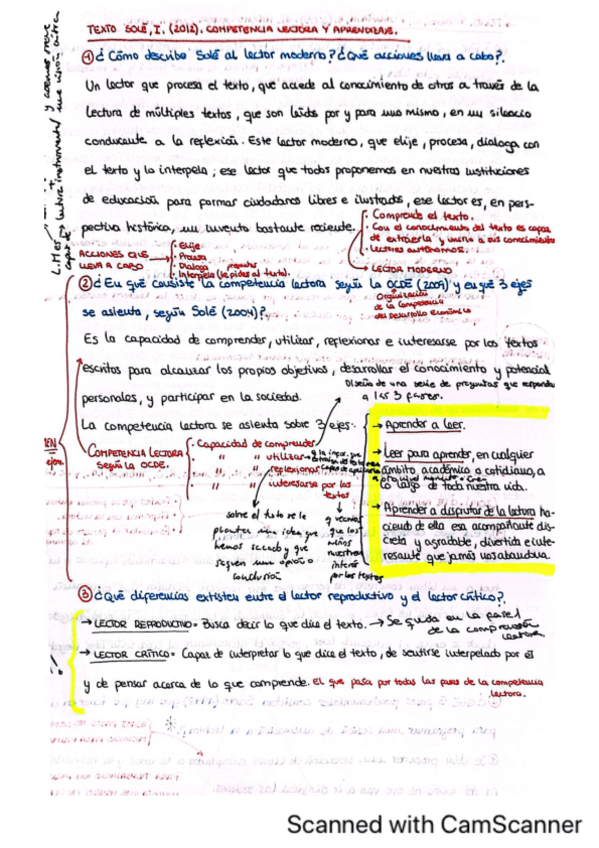 TEXTO SOLÉ, I. (2012). COMPETENCIA LECTORA Y APRENDIZAJE.
① ¿Cómo describe Solé al lector moderno? ¿Qué acciones lleva a cabo?.
Un lector que procesa el texto, que accede al conocimiento de otros a través de la
lectura de múltiples textos, que son leídos por y para uno mismo, en un silencio
conducente a la reflexión. Este lector moderno, que elije, procesa, dialoga con
el texto y lo interpela; ese lector que todos proponemos en nuestras instituciones
de educación para formar ciudadanos libres e ilustrados, ese lector es, en pers-
pectiva histórica, un invento bastante reciente.
· Comprende el texto.
· Con el conocimiento del texto es capaz
de extraerla y unirlo a sus conocimientos
· Lectores autónomos.
→ LECTOR MODERNO
ACCIONES QUE
LLEVA A CABO
· Elije
· Procesa
· Dialoga
preguntas
· Interpela (le pides al texto).
L.M es
capaz de
lectura instrumental
una visión crítica
② ¿En qué consiste la competencia lectora según la OCDE (2009) y en qué 3 ejes
se asienta, según Solé (2004)?.
Organización
de la Competencia
del Desarrollo Económico
Es la capacidad de comprender, utilizar, reflexionar e interesarse por los textos
escritos para alcanzar los propios objetivos, desarrollar el conocimiento y potencial
personales, y participar en la sociedad.
Diseño de una serie de preguntas que respondan
a las 3 fases.
La competencia lectora se asienta sobre 3 ejes:
→ Aprender a leer.
→ Leer para aprender, en cualquier
ámbito académico o cotidiano, a
lo largo de toda nuestra vida.
→ Aprender a disfrutar de la lectura ha-
ciendo de ella esa acompañante dis-
creta y agradable, divertida e inte-
resante que jamás nos abandona.
COMPETENCIA LECTORA
SEGÚN LA OCDE.
· Capacidad de comprender
" " utilizar
" " reflexionar
" " interesarse por los
textos
sobre el texto se le
plantea una idea que
hemos sacado y que
saquen una opinión o
conclusión
y veamos
que los
niños
muestren
interés
por los textos
③ ¿Qué diferencias existen entre el lector reproductivo y el lector crítico?.
→ LECTOR REPRODUCTIVO = Busca decir lo que dice el texto. → Se queda en la fase 1
de la comprensión
lectora.
→ LECTOR CRÍTICO = Capaz de interpretar lo que dice el texto, de sentirse interpelado por él
y de pensar acerca de lo que comprende. El que pasa por todas las fases de la competencia
lectora.
Scanned with CamScanner